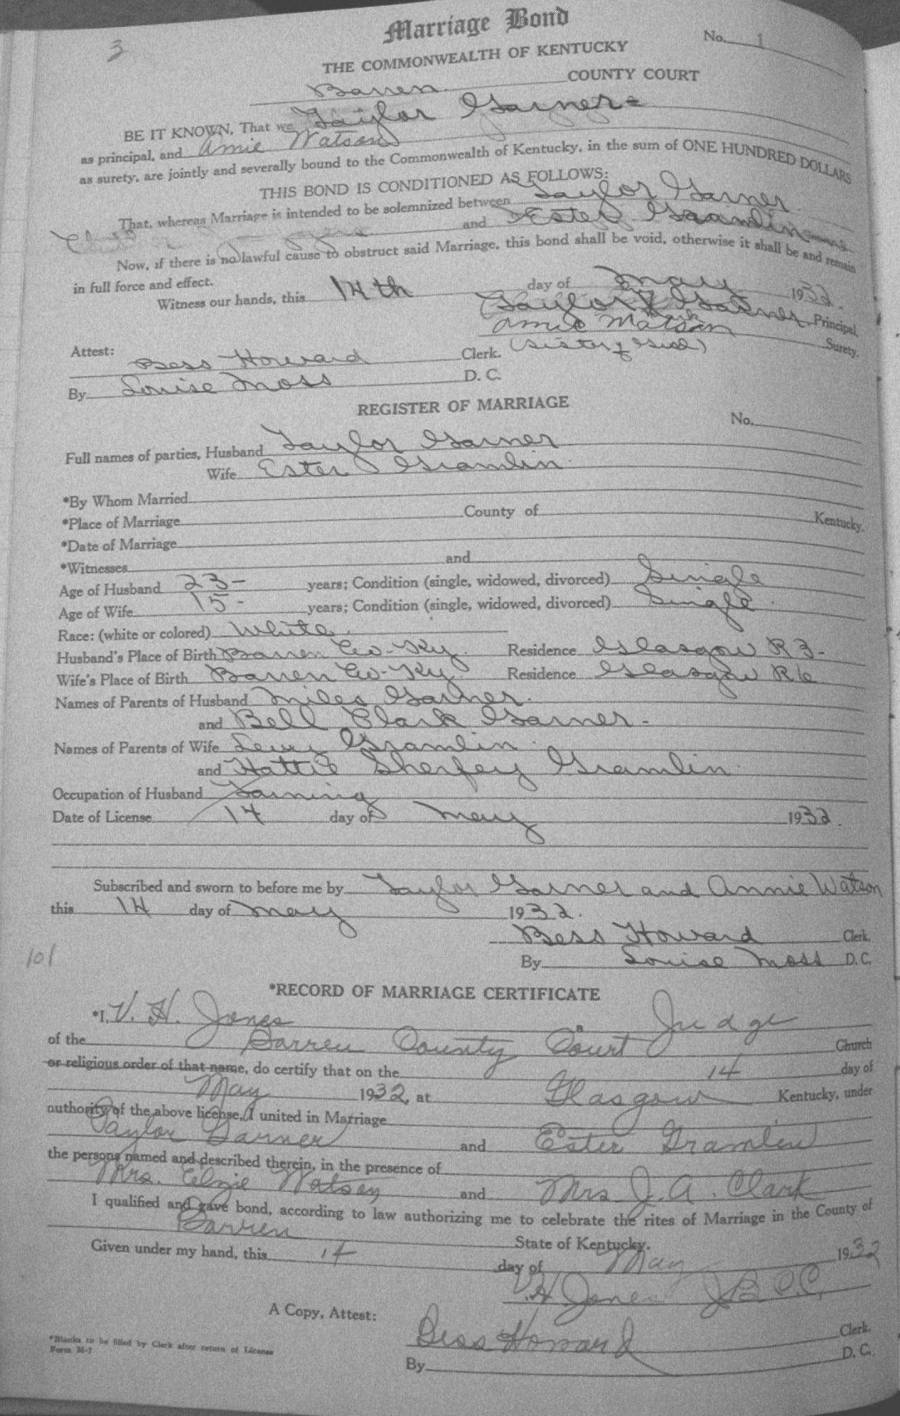 3
Marriage Bond
No. 1
THE COMMONWEALTH OF KENTUCKY
Barren COUNTY COURT
BE IT KNOWN, That we Taylor Garner
as principal, and Amie Watson
as surety, are jointly and severally bound to the Commonwealth of Kentucky, in the sum of ONE HUNDRED DOLLARS
THIS BOND IS CONDITIONED AS FOLLOWS:
That, whereas Marriage is intended to be solemnized between Taylor Garner
and Ester Gramlin
Now, if there is no lawful cause to obstruct said Marriage, this bond shall be void, otherwise it shall be and remain
in full force and effect.
Witness our hands, this 14th day of May 1932.
Taylor Garner Principal
Amie Watson Surety.
Attest:
Bess Howard Clerk. (Sister of Girl)
By Louise Moss D. C.
REGISTER OF MARRIAGE
No.
Full names of parties, Husband Taylor Garner
Wife Ester Gramlin
*By Whom Married
*Place of Marriage County of Kentucky.
*Date of Marriage
*Witnesses and
Age of Husband 23- years; Condition (single, widowed, divorced) Single
Age of Wife 15- years; Condition (single, widowed, divorced) Single.
Race: (white or colored) White.
Husband's Place of Birth Barren Co-Ky. Residence Glasgow R 3-
Wife's Place of Birth Barren Co-Ky. Residence Glasgow R 6
Names of Parents of Husband Miles Garner.
and Bell Clark Garner-
Names of Parents of Wife Levy Gramlin
and Hattie Sherfey Gramlin
Occupation of Husband Farming
Date of License 14 day of May 1932.
Subscribed and sworn to before me by Taylor Garner and Annie Watson
this 14 day of May 1932.
Bess Howard Clerk.
By Louise Moss D. C.
101
*RECORD OF MARRIAGE CERTIFICATE
*I, V. H. Jones a Judge
of the Barren County Court Church
or religious order of that name, do certify that on the 14 day of
May 1932, at Glasgow Kentucky, under
authority of the above license, I united in Marriage
Taylor Garner and Ester Gramlin
the persons named and described therein, in the presence of
Mrs. Elzie Watson and Mrs J. A. Clark
I qualified and gave bond, according to law authorizing me to celebrate the rites of Marriage in the County of
Barren State of Kentucky.
Given under my hand, this 14 day of May 1932
V. H Jones J B C C.
A Copy, Attest:
Bess Howard Clerk.
By D. C.
*Blanks to be filled by Clerk after return of License
Form M-7